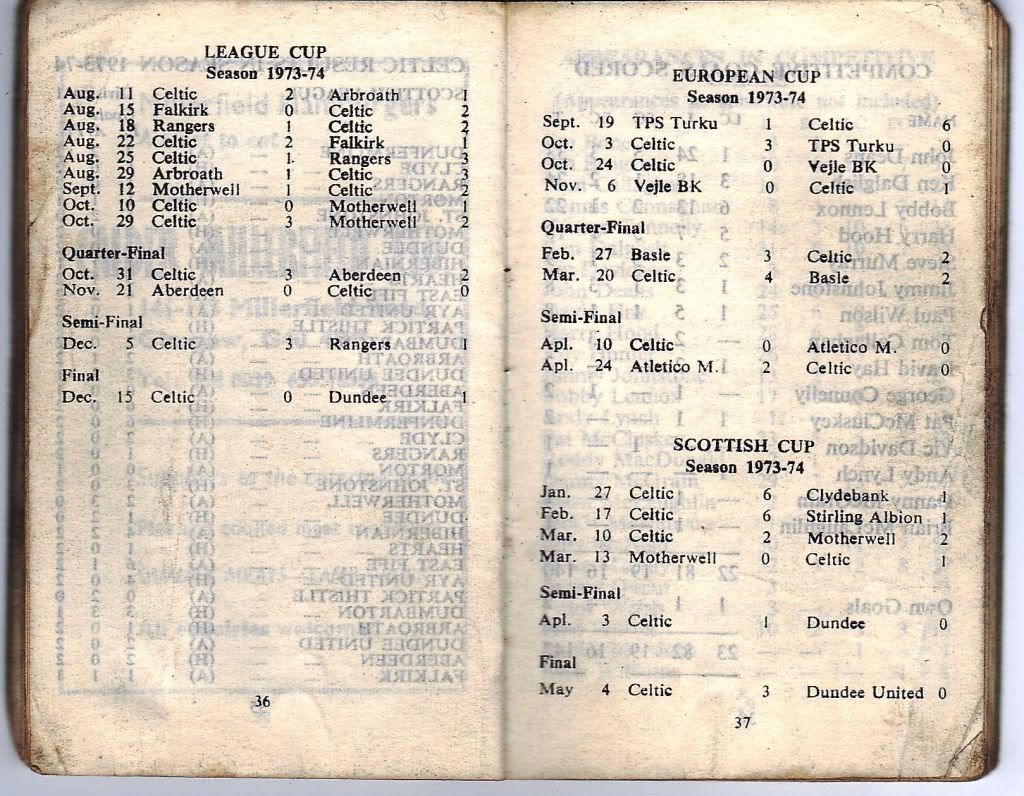 LEAGUE CUP
Season 1973-74
Aug. 11 Celtic 2 Arbroath 1
Aug. 15 Falkirk 0 Celtic 2
Aug. 18 Rangers 1 Celtic 2
Aug. 22 Celtic 2 Falkirk 1
Aug. 25 Celtic 1 Rangers 3
Aug. 29 Arbroath 1 Celtic 3
Sept. 12 Motherwell 1 Celtic 2
Oct. 10 Celtic 0 Motherwell 1
Oct. 29 Celtic 3 Motherwell 2
Quarter-Final
Oct. 31 Celtic 3 Aberdeen 2
Nov. 21 Aberdeen 0 Celtic 0
Semi-Final
Dec. 5 Celtic 3 Rangers 1
Final
Dec. 15 Celtic 0 Dundee 1
36
EUROPEAN CUP
Season 1973-74
Sept. 19 TPS Turku 1 Celtic 6
Oct. 3 Celtic 3 TPS Turku 0
Oct. 24 Celtic 0 Vejle BK 0
Nov. 6 Vejle BK 0 Celtic 1
Quarter-Final
Feb. 27 Basle 3 Celtic 2
Mar. 20 Celtic 4 Basle 2
Semi-Final
Apl. 10 Celtic 0 Atletico M. 0
Apl. 24 Atletico M. 2 Celtic 0
SCOTTISH CUP
Season 1973-74
Jan. 27 Celtic 6 Clydebank 1
Feb. 17 Celtic 6 Stirling Albion 1
Mar. 10 Celtic 2 Motherwell 2
Mar. 13 Motherwell 0 Celtic 1
Semi-Final
Apl. 3 Celtic 1 Dundee 0
Final
May 4 Celtic 3 Dundee United 0
37